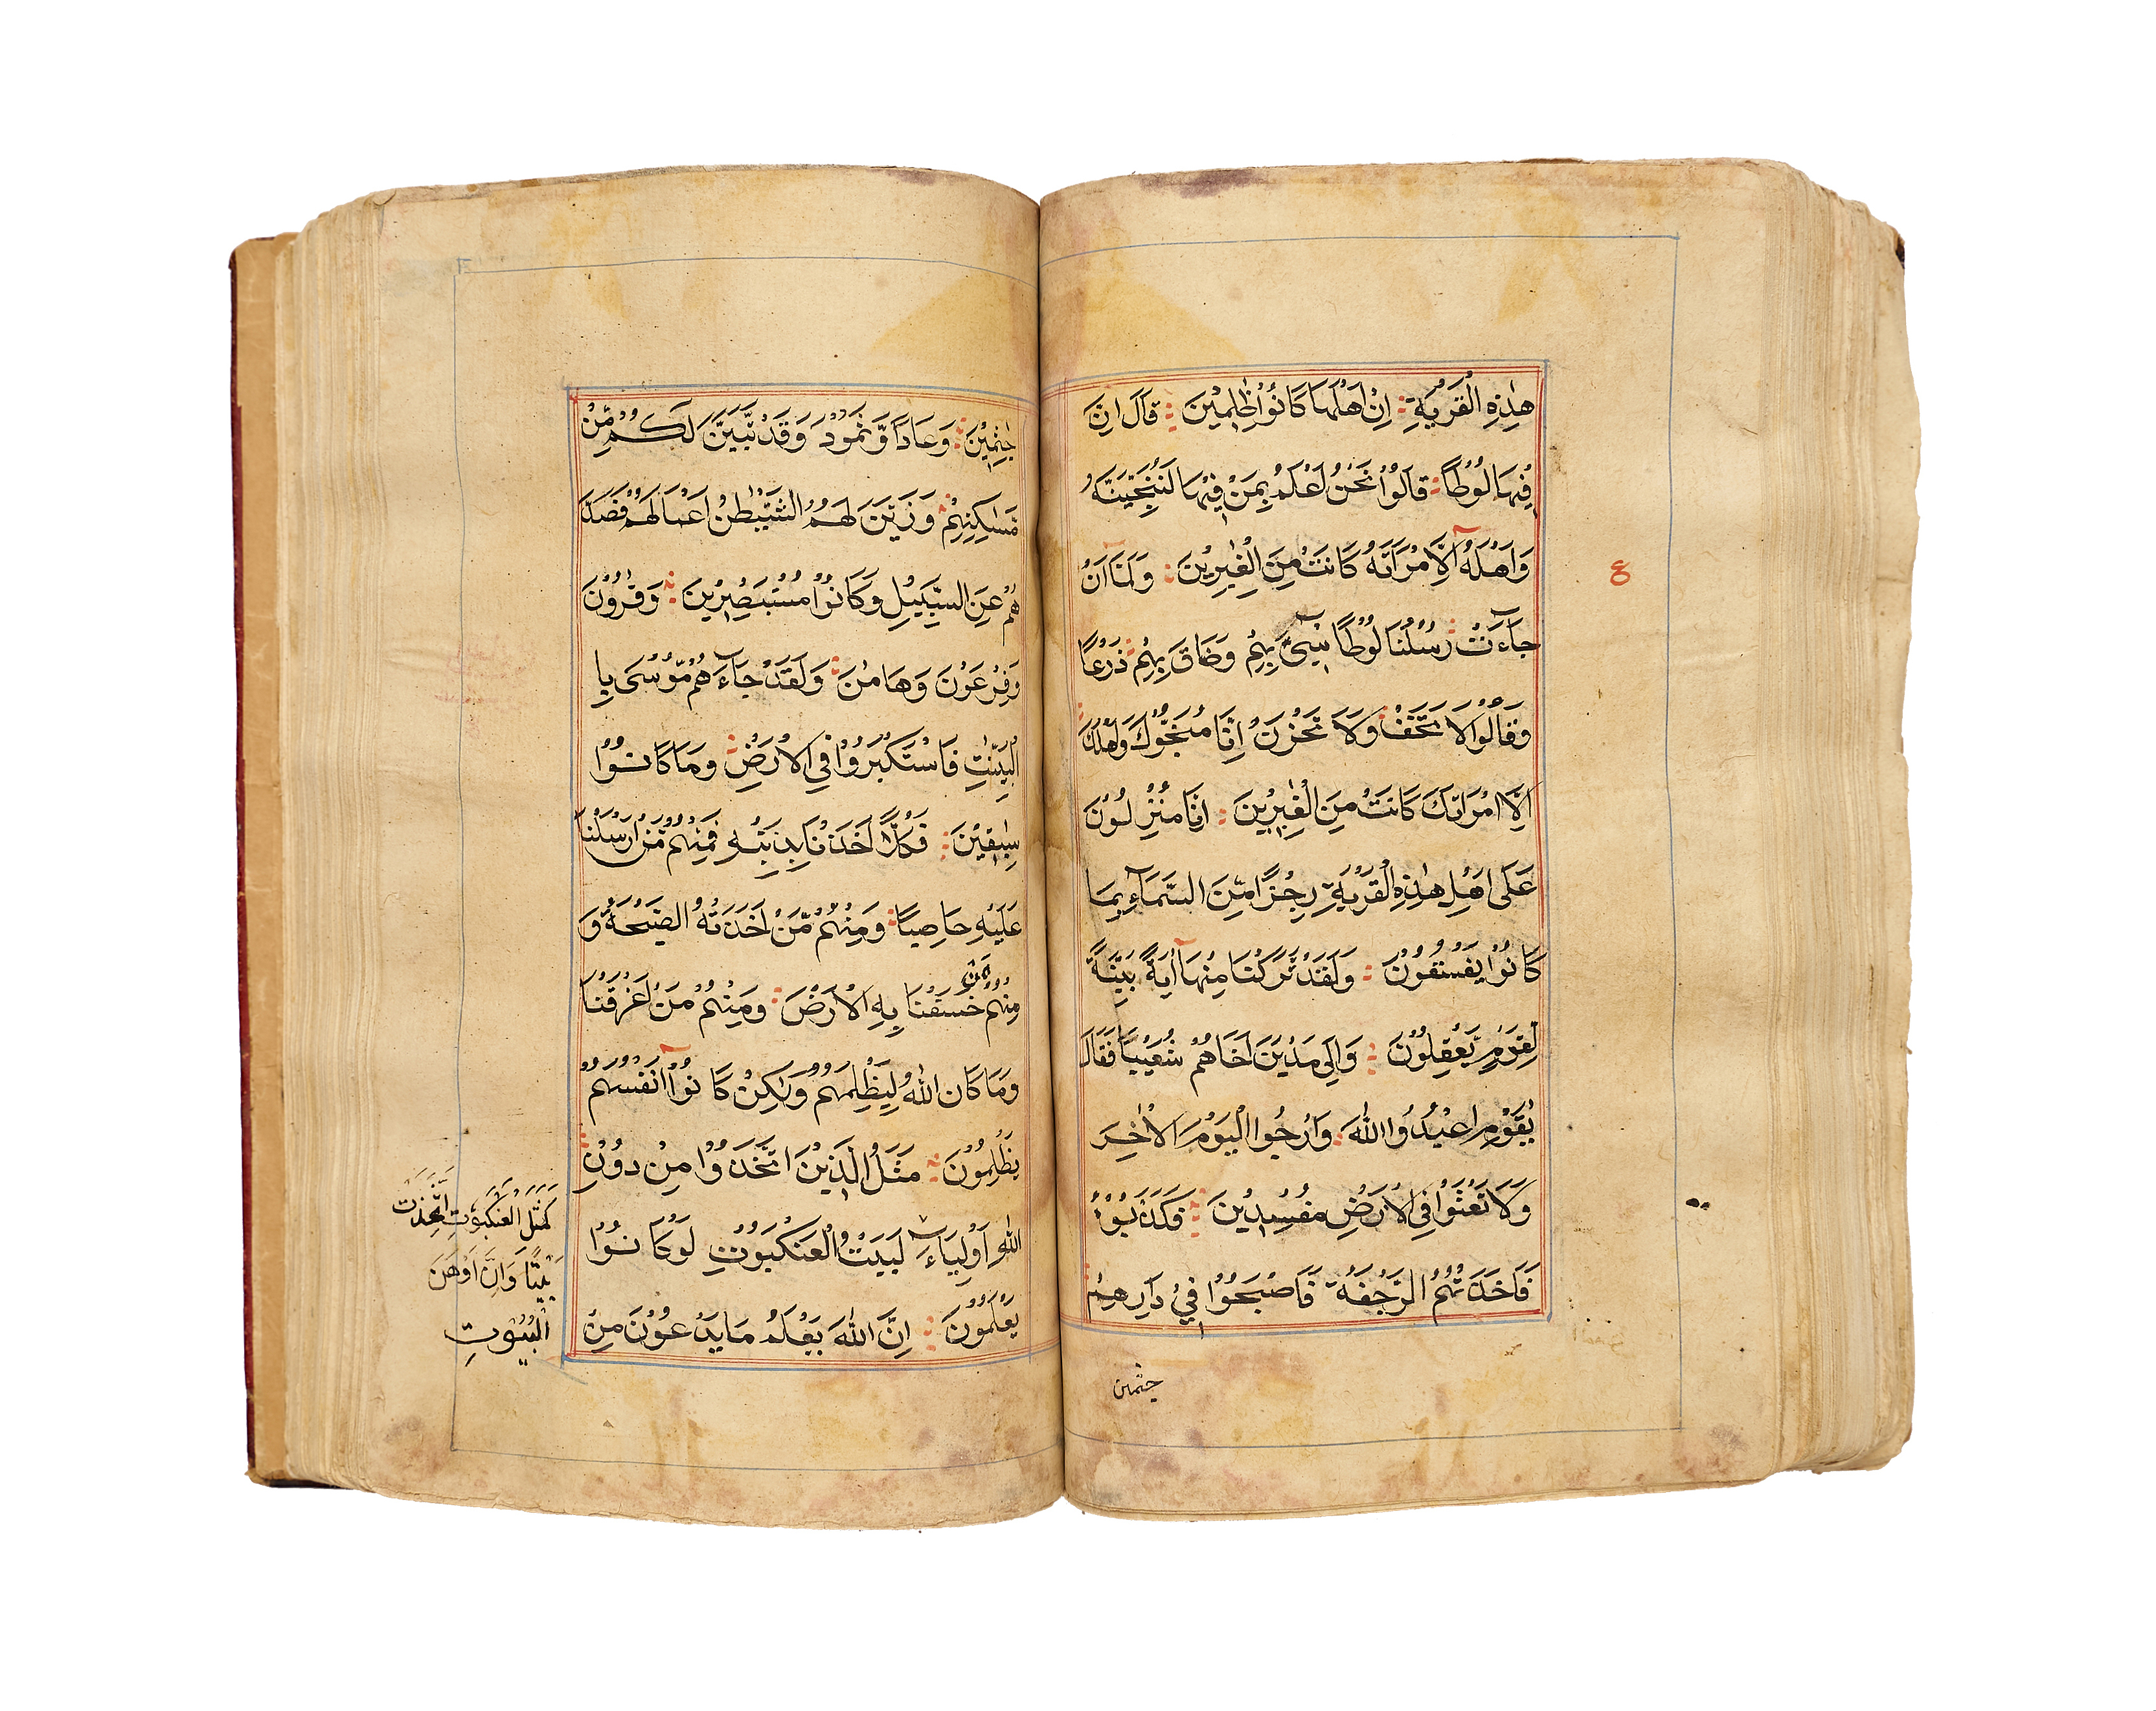 هٰذِهِ الْقَرْيَةِ اِنَّ اَهْلَهَا كَانُوْا ظٰلِمِيْنَ قَالَ اِنَّ
فِيْهَا لُوْطًا قَالُوْا نَحْنُ اَعْلَمُ بِمَنْ فِيْهَا لَنُنَجِّيَنَّهٗ
وَاَهْلَهٗ اِلَّا امْرَاَتَهٗ كَانَتْ مِنَ الْغٰبِرِيْنَ وَلَمَّا اَنْ
جَآءَتْ رُسُلُنَا لُوْطًا سِيْٓءَ بِهِمْ وَضَاقَ بِهِمْ ذَرْعًا
وَقَالُوْا لَا تَخَفْ وَلَا تَحْزَنْ اِنَّا مُنَجُّوْكَ وَاَهْلَكَ
اِلَّا امْرَاَتَكَ كَانَتْ مِنَ الْغٰبِرِيْنَ اِنَّا مُنْزِلُوْنَ
عَلٰى اَهْلِ هٰذِهِ الْقَرْيَةِ رِجْزًا مِّنَ السَّمَآءِ بِمَا
كَانُوْا يَفْسُقُوْنَ وَلَقَدْ تَرَكْنَا مِنْهَا اٰيَةً بَيِّنَةً
لِّقَوْمٍ يَّعْقِلُوْنَ وَاِلٰى مَدْيَنَ اَخَاهُمْ شُعَيْبًا فَقَالَ
يٰقَوْمِ اعْبُدُوا اللّٰهَ وَارْجُوا الْيَوْمَ الْاٰخِرَ
وَلَا تَعْثَوْا فِي الْاَرْضِ مُفْسِدِيْنَ فَكَذَّبُوْهُ
فَاَخَذَتْهُمُ الرَّجْفَةُ فَاَصْبَحُوْا فِيْ دَارِهِمْ
جثمين
ع
جٰثِمِيْنَ وَعَادًا وَّثَمُوْدَ وَقَدْ تَّبَيَّنَ لَكُمْ مِّنْ
مَّسٰكِنِهِمْ وَزَيَّنَ لَهُمُ الشَّيْطٰنُ اَعْمَالَهُمْ فَصَدَّ
هُمْ عَنِ السَّبِيْلِ وَكَانُوْا مُسْتَبْصِرِيْنَ وَقَارُوْنَ
وَفِرْعَوْنَ وَهَامٰنَ وَلَقَدْ جَآءَهُمْ مُّوْسٰى بِا
لْبَيِّنٰتِ فَاسْتَكْبَرُوْا فِي الْاَرْضِ وَمَا كَانُوْا
سٰبِقِيْنَ فَكُلًّا اَخَذْنَا بِذَنْبِهٖ فَمِنْهُمْ مَّنْ اَرْسَلْنَا
عَلَيْهِ حَاصِبًا وَمِنْهُمْ مَّنْ اَخَذَتْهُ الصَّيْحَةُ وَ
مِنْهُمْ مَّنْ خَسَفْنَا بِهِ الْاَرْضَ وَمِنْهُمْ مَّنْ اَغْرَقْنَا
وَمَا كَانَ اللّٰهُ لِيَظْلِمَهُمْ وَلٰكِنْ كَانُوْٓا اَنْفُسَهُمْ
يَظْلِمُوْنَ مَثَلُ الَّذِيْنَ اتَّخَذُوْا مِنْ دُوْنِ
اللّٰهِ اَوْلِيَآءَ لَبَيْتُ الْعَنْكَبُوْتِ لَوْ كَانُوْا
يَعْلَمُوْنَ اِنَّ اللّٰهَ يَعْلَمُ مَا يَدْعُوْنَ مِنْ
كَمَثَلِ الْعَنْكَبُوْتِ اِتَّخَذَتْ
بَيْتًا وَاِنَّ اَوْهَنَ
الْبُيُوْتِ